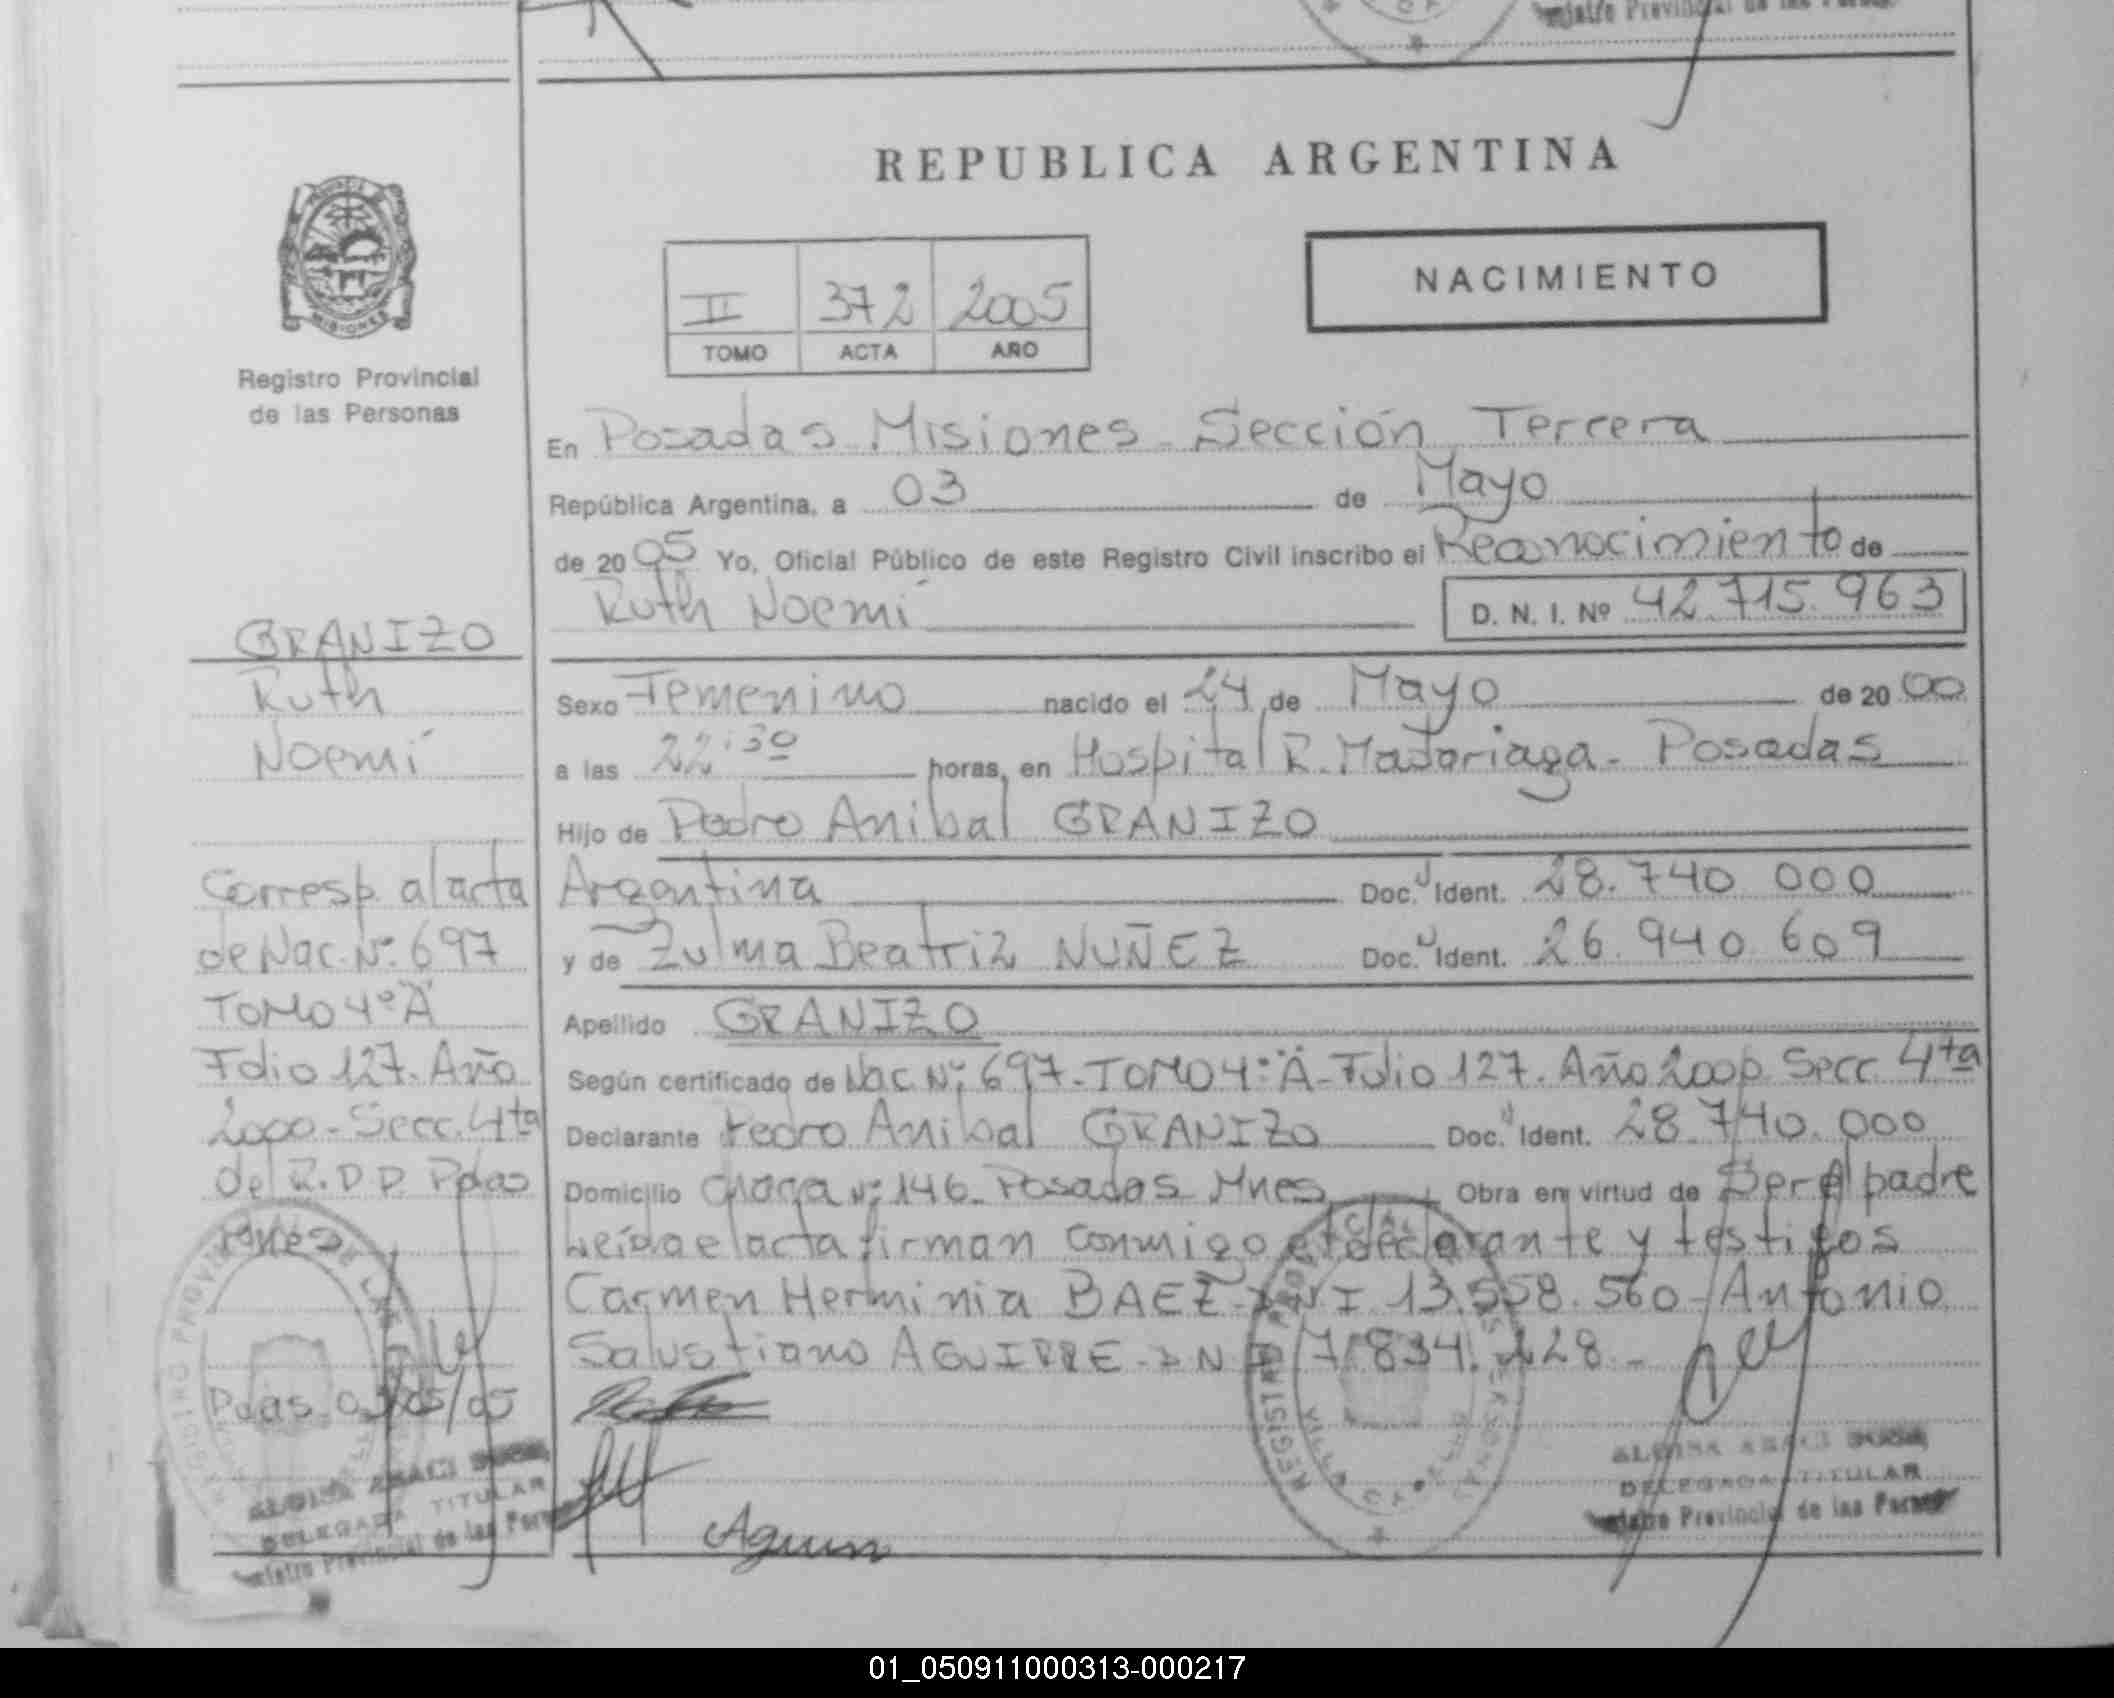 REPUBLICA ARGENTINA
NACIMIENTO
II 372 2005
TOMO ACTA AÑO
MISIONES
Registro Provincial
de las Personas
En Posadas Misiones Sección Tercera
República Argentina, a 03 de Mayo
de 2005 Yo, Oficial Público de este Registro Civil inscribo el Reconocimiento de
Ruth Noemí D. N. I. Nº 42.715.963
GRANIZO
Ruth
Noemí
Sexo Femenino nacido el 24 de Mayo de 2000
a las 22:30 horas, en Hospital R. Madariaga - Posadas
Hijo de Pedro Anibal GRANIZO
Argentina Doc. Ident. 28.740.000
y de Zulma Beatriz NUÑEZ Doc. Ident. 26.940.609
Apellido GRANIZO
Según certificado de Nac. Nº: 697-TOMO 4º"A"-Folio 127. Año 2000. Secc. 4ta
Declarante Pedro Anibal GRANIZO Doc. Ident. 28.740.000
Domicilio chacra Nº 146. Posadas Mnes Obra en virtud de Ser el padre
Leída el acta firman conmigo el declarante y testigos
Carmen Herminia BAEZ-DNI 13.558.560-Antonio
Salustiano AGUIRRE-DNI 7.834.228.-
Corresp. al acta
de Nac. Nº: 697
TOMO 4º"A"
Folio 127. Año
2000-Secc. 4ta
del R.D.P. Pdas
Mnes
Pdas. 03/05/05
DELEGADA TITULAR
Registro Provincial de las
DELEGADA TITULAR
Provincial de las
01_050911000313-000217